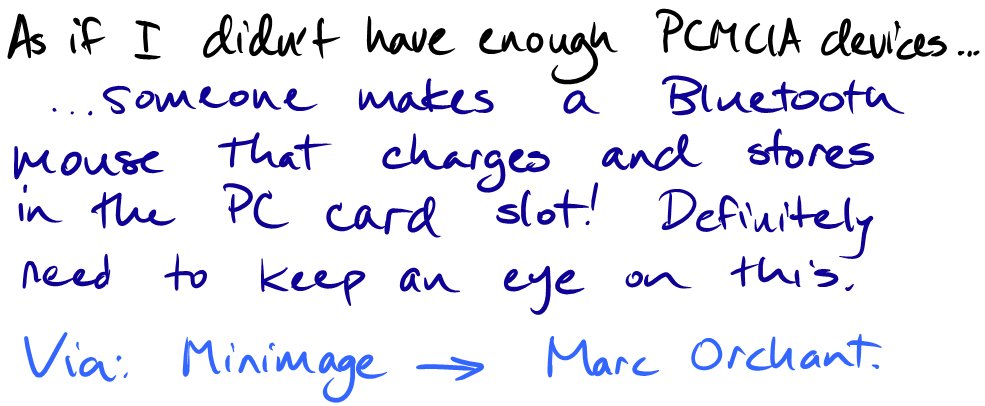 As if I didn't have enough PCMCIA devices...
...someone makes a Bluetooth
mouse that charges and stores
in the PC card slot! Definitely
need to keep an eye on this.
Via: Minimage → Marc Orchant.